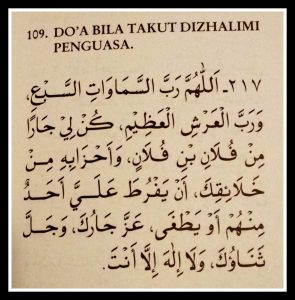 109. DO'A BILA TAKUT DIZHALIMI
PENGUASA.
٢١٧ـ اَللَّهُمَّ رَبَّ السَّمَاوَاتِ السَّبْعِ،
وَرَبَّ الْعَرْشِ الْعَظِيْمِ، كُنْ لِيْ جَارًا
مِنْ فُلَانِ بْنِ فُلَانٍ، وَأَحْزَابِهِ مِنْ
خَلَائِقِكَ، أَنْ يَفْرُطَ عَلَيَّ أَحَدٌ
مِنْهُمْ أَوْ يَطْغَى، عَزَّ جَارُكَ، وَجَلَّ
ثَنَاؤُكَ، وَلَا إِلٰهَ إِلَّا أَنْتَ.